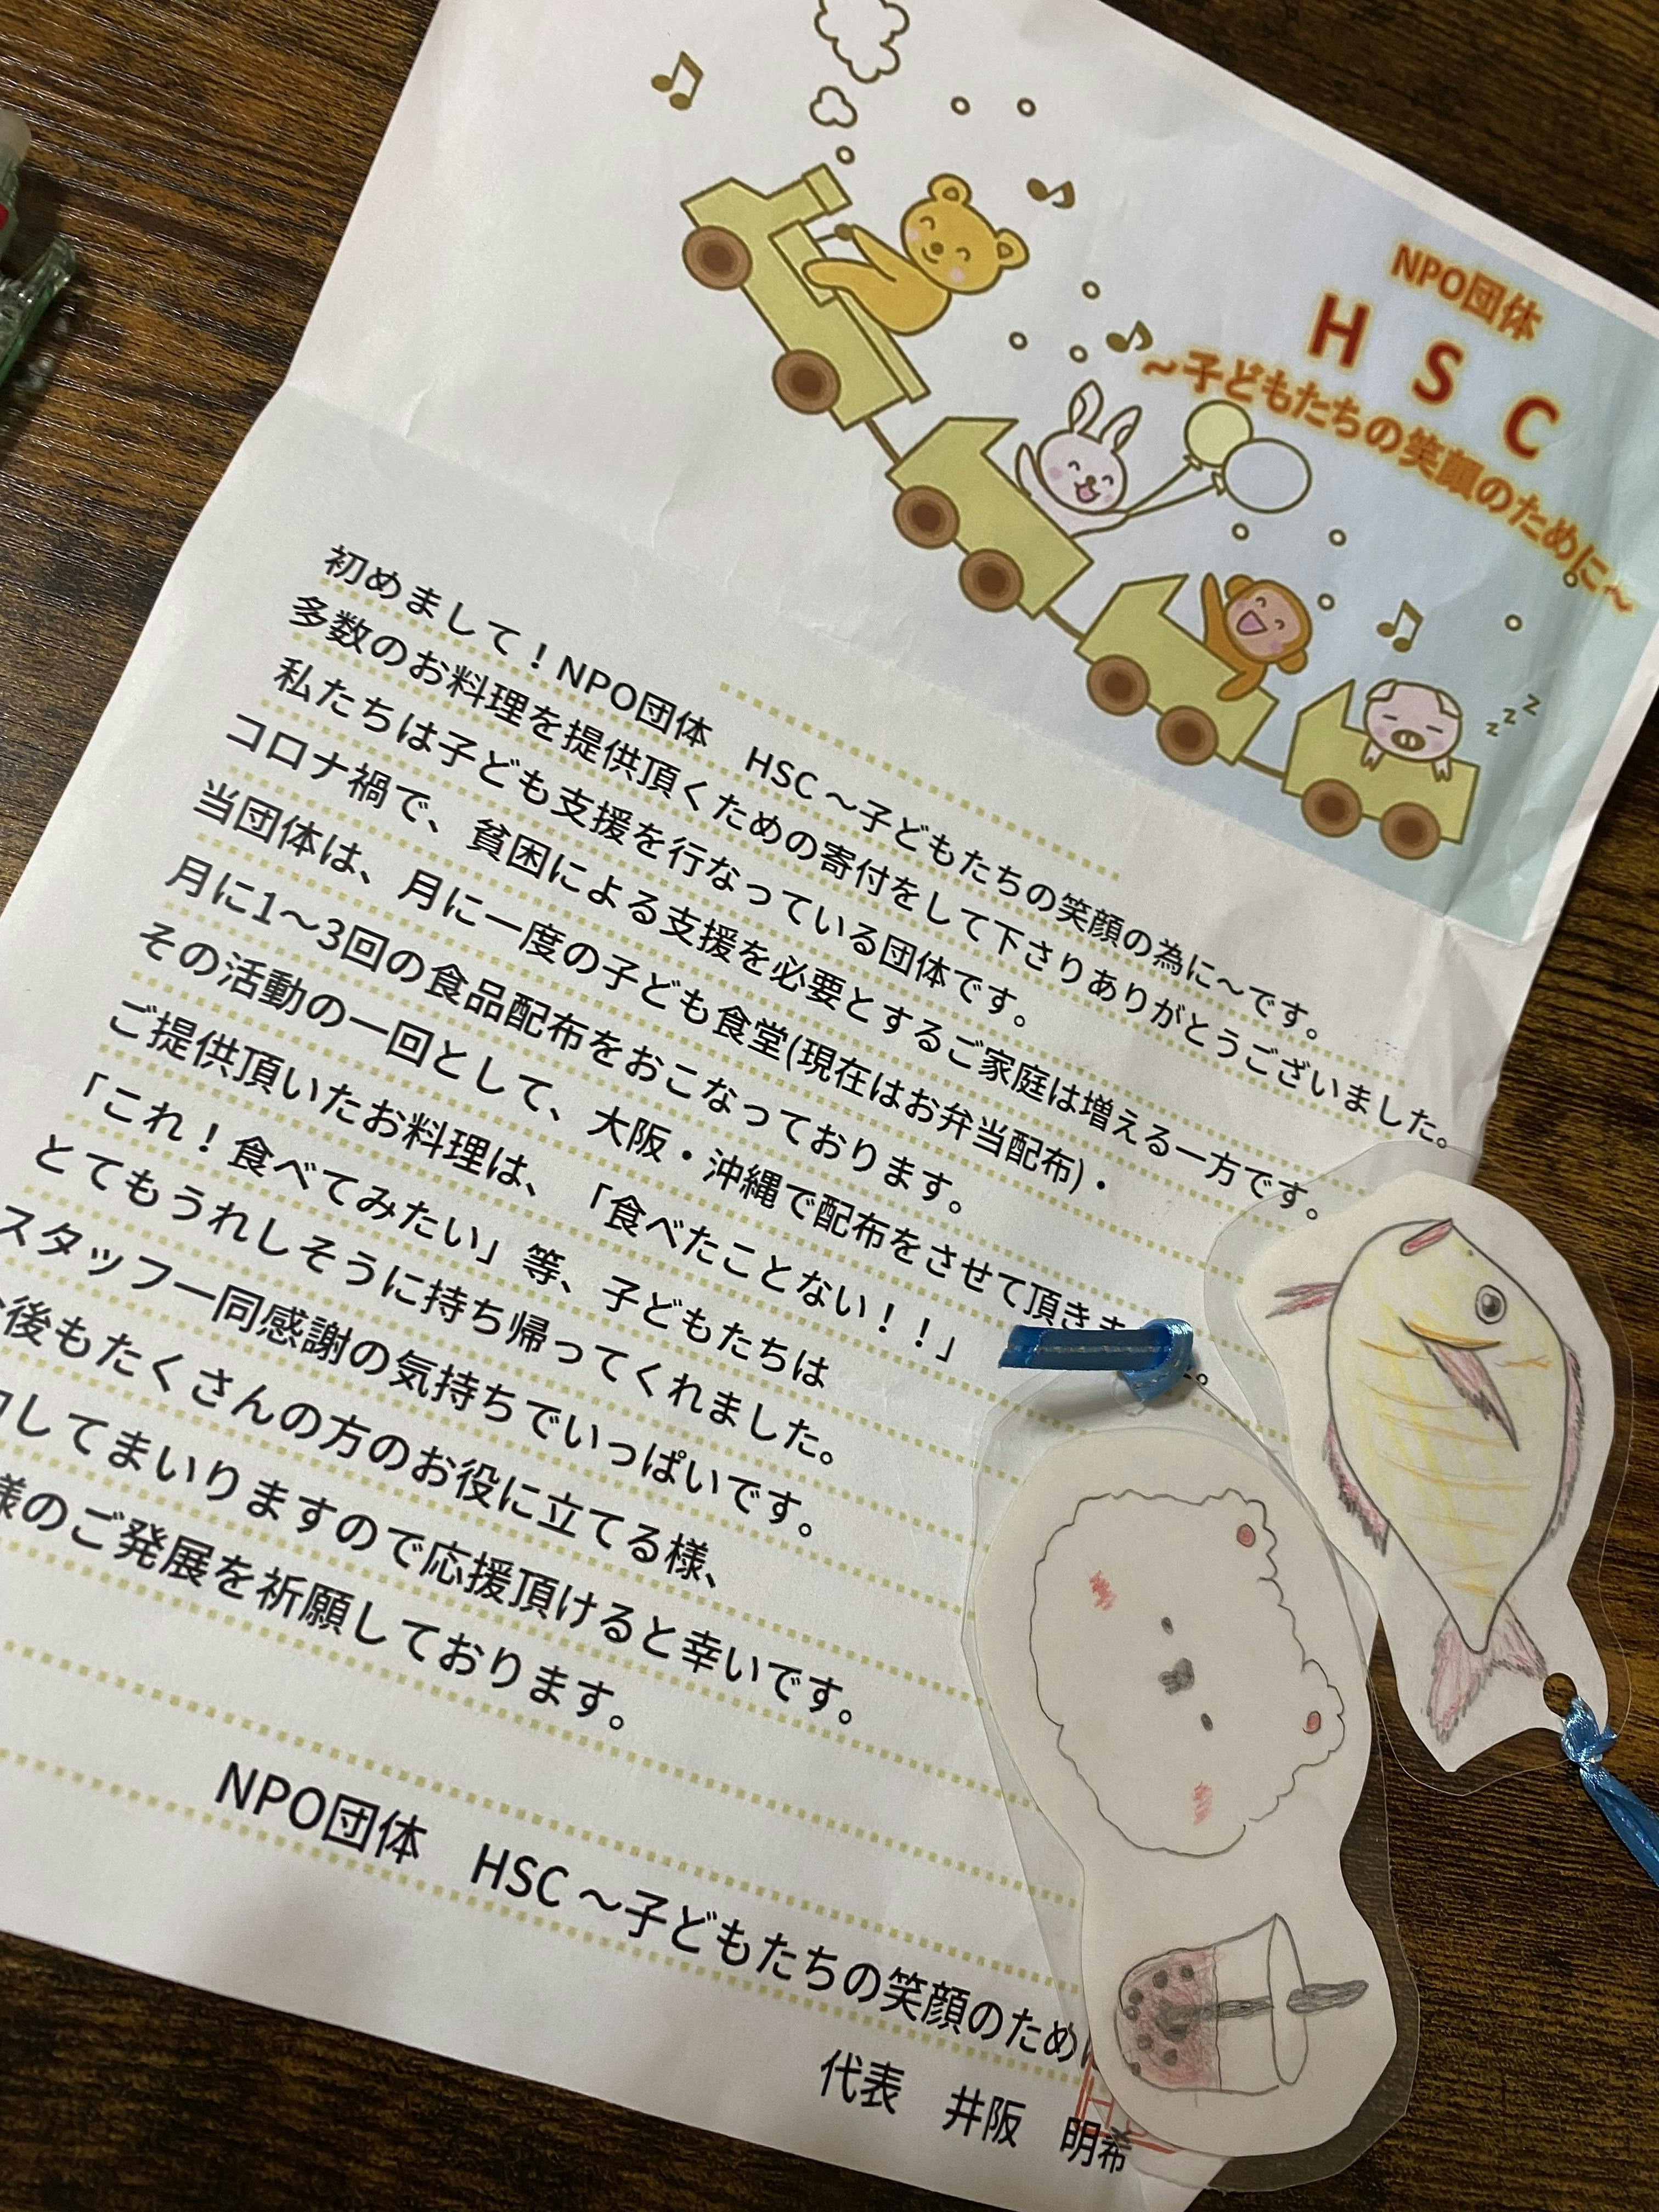 NPO団体
H S C
～子どもたちの笑顔のために～
z z z
初めまして！NPO団体 HSC～子どもたちの笑顔の為に～です。
多数のお料理を提供頂くための寄付をして下さりありがとうございました。
私たちは子ども支援を行なっている団体です。
コロナ禍で、貧困による支援を必要とするご家庭は増える一方です。
当団体は、月に一度の子ども食堂(現在はお弁当配布)・
月に1～3回の食品配布をおこなっております。
その活動の一回として、大阪・沖縄で配布をさせて頂きま
ご提供頂いたお料理は、「食べたことない！！」
「これ！食べてみたい」等、子どもたちは
とてもうれしそうに持ち帰ってくれました。
スタッフ一同感謝の気持ちでいっぱいです。
後もたくさんの方のお役に立てる様、
してまいりますので応援頂けると幸いです。
様のご発展を祈願しております。
NPO団体 HSC～子どもたちの笑顔のため
代表 井阪 明希